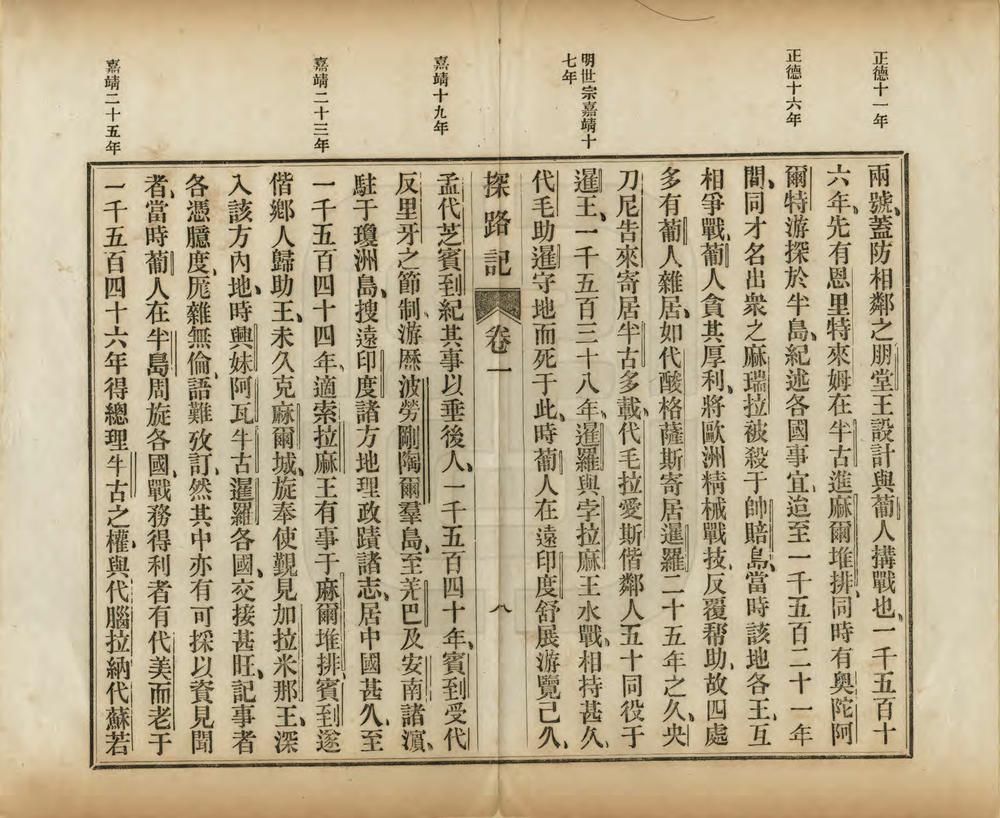 正德十一年
正德十六年
明世宗嘉靖十
七年
嘉靖十九年
嘉靖二十三年
嘉靖二十五年
兩號、蓋防相鄰之朋堂王設計與葡人搆戰也、一千五百十
六年、先有恩里特來姆在半古進麻爾堆排、同時有奧陀阿
爾特游探於半島、紀述各國事宜、迨至一千五百二十一年
間、同才名出衆之麻瑞拉被殺于帥賠島、當時該地各王、互
相爭戰、葡人貪其厚利、將歐洲精械戰技、反覆帮助、故四處
多有葡人雜居、如代酸格薩斯寄居暹羅二十五年之久、央
刀尼告來寄居半古多載、代毛拉愛斯偕鄰人五十同役于
暹王、一千五百三十八年、暹羅與孛拉麻王水戰、相持甚久、
代毛助暹守地而死于此、時葡人在遠印度舒展游覽已久、
探路記
卷一
八
孟代芝賓到紀其事以垂後人、一千五百四十年、賓到受代
反里牙之節制、游厯波勞剛陶爾羣島、至羌巴及安南諸濵、
駐于瓊洲島、搜遠印度諸方地理政蹟諸志、居中國甚久、至
一千五百四十四年、適索拉麻王有事于麻爾堆排、賓到遂
偕鄉人歸助王、未久克麻爾城、旋奉使觐見加拉米那王、深
入該方內地、時與妹阿瓦半古暹羅各國、交接甚旺、記事者
各憑臆度、厖雜無倫、語難攷訂、然其中亦有可採以資見聞
者、當時葡人在半島周旋各國、戰務得利者有代美而老于
一千五百四十六年得總理半古之權、與代腦拉納代蘇若